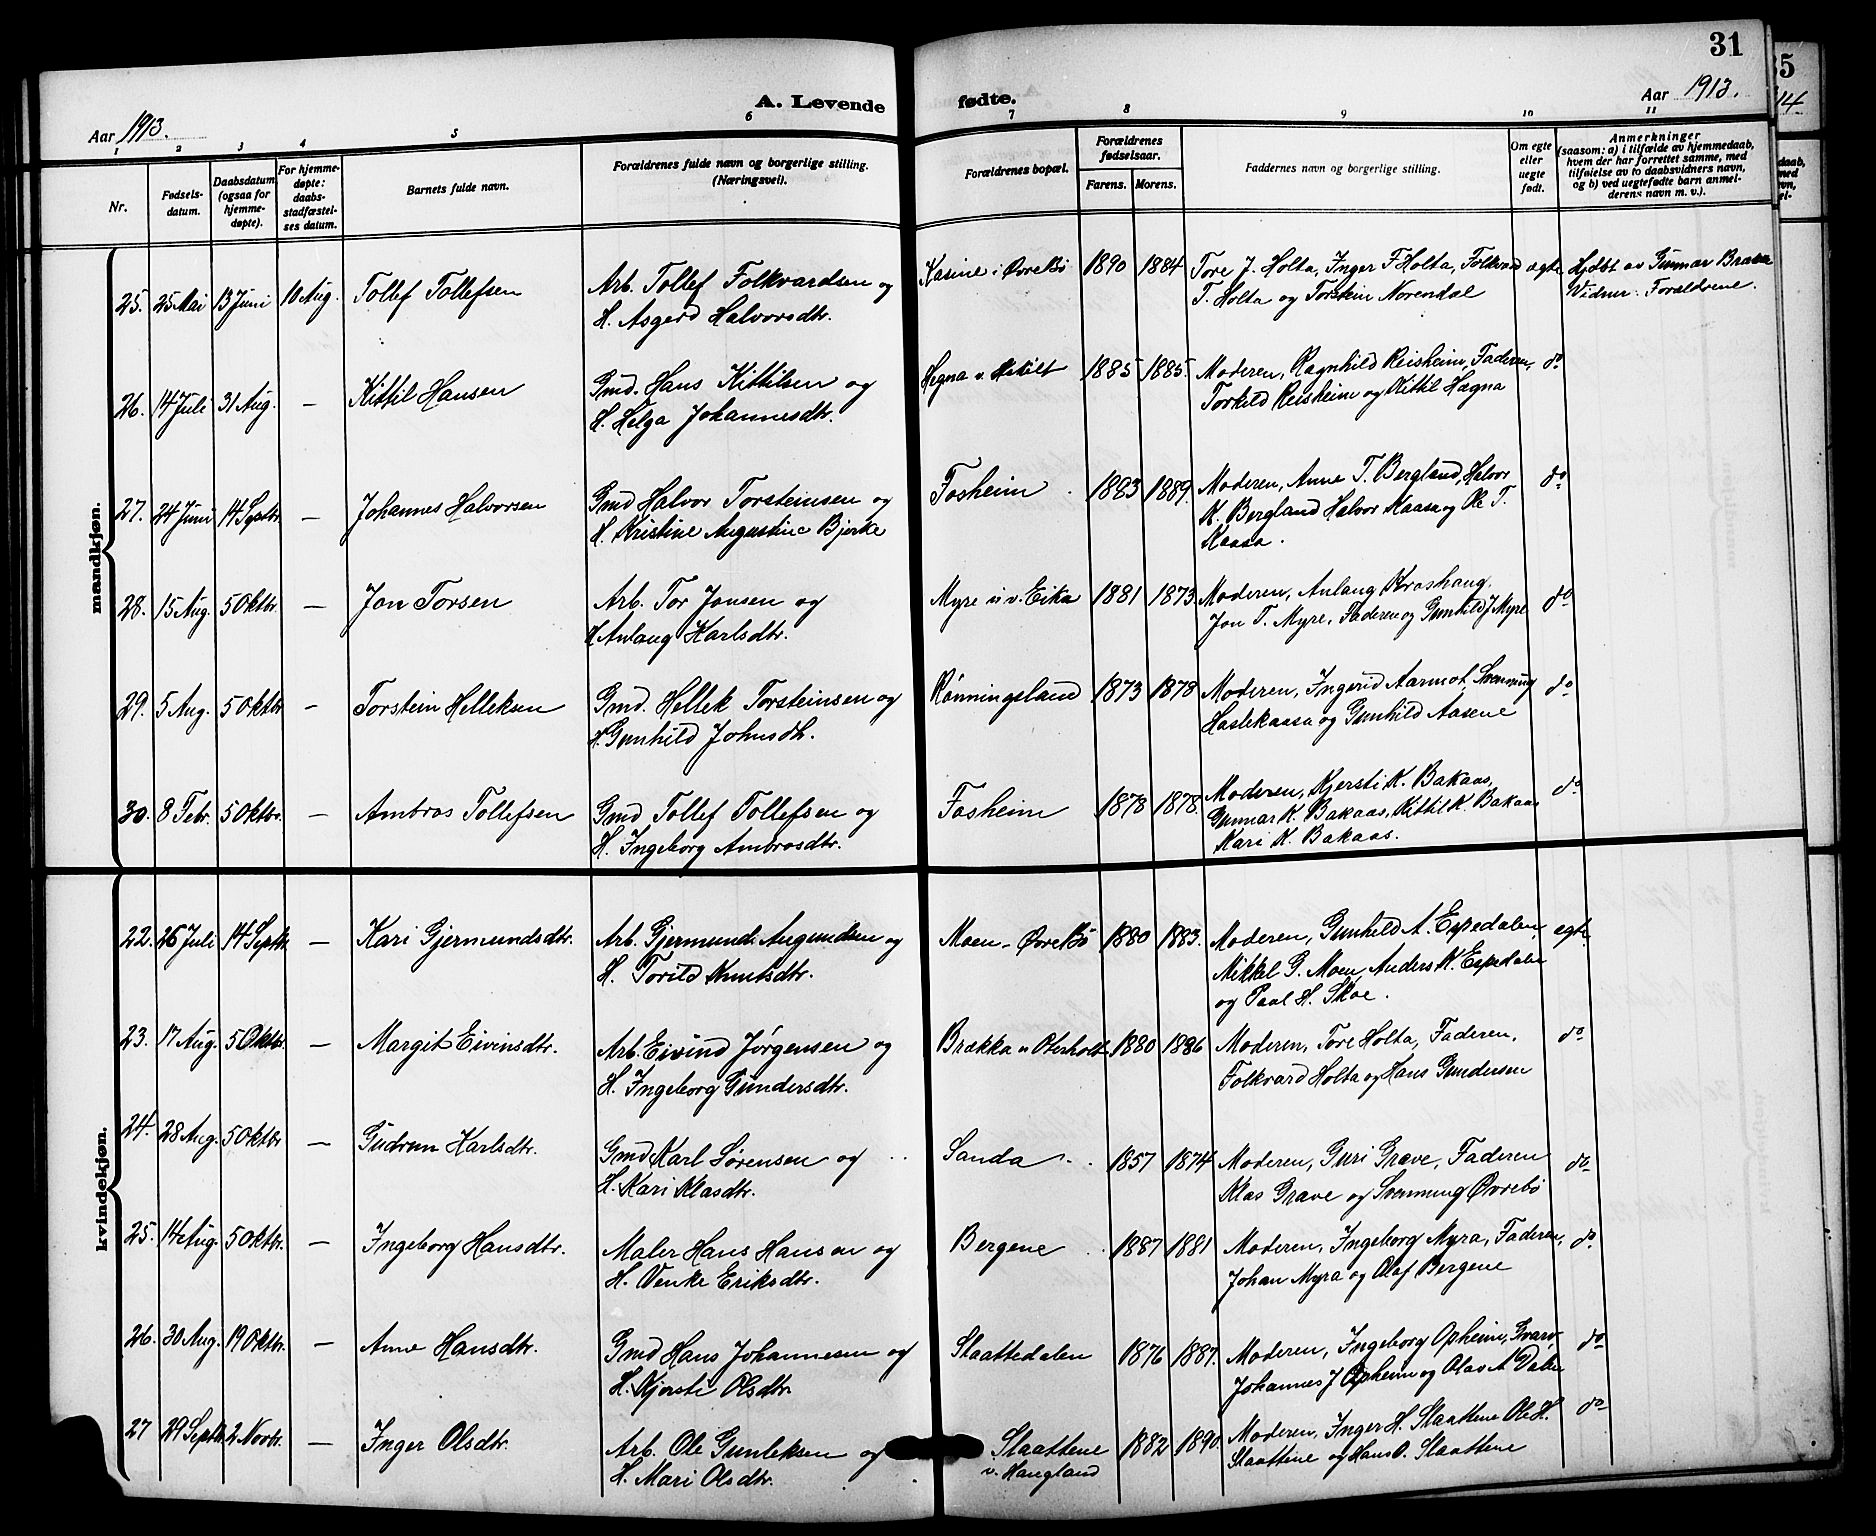 31
35
14
A. Levende fødte.
Aar 1913.
Aar 1913.
1 2 3 4 5 6 7 8 9 10 11
Nr.
Fødsels-
datum.
Daabsdatum
(ogsaa for
hjemme-
døpte).
For hjemme-
døpte:
daabs-
stadfæstel-
ses datum.
Barnets fulde navn.
Forældrenes fulde navn og borgerlige stilling.
(Næringsvei).
Forældrenes bopæl.
Forældrenes
fødselsaar.
Farens. Morens.
Faddernes navn og borgerlige stilling.
Om egte
eller
uegte
født.
Anmerkninger
(saasom: a) i tilfælde av hjemmedaab,
hvem der har forrettet samme, med
tilføielse av to daabsvidners navn,
og b) ved uegtefødte barn anmel-
derens navn m. v.).
mandkjøn.
25. 25 Mai 13 Juni 10 Aug. Tollef Tollefsen
Arb. Tollef Folkvardsen og
H. Asgerd Halvorsdtr.
Kasine i Øvrebö 1890 1884
Tore J. Holta, Inger F Holta, Folkvard
T. Holta og Torstein Norendal
egte
Hjdbt av Gunnar Brasa
Vidner: Forældrene.
26. 14 Juli 31 Aug. — Kittil Hansen
Gmd. Hans Kittilsen og
H. Helga Johannesdtr.
Hegna v. 1885 1885.
Moderen, Ragnhild Reisheim, Faderen,
Torkild Reisheim og Kittil Hægna
do
27. 24 Juni 14 Septbr. — Johannes Halvorsen
Gmd Halvor Torsteinsen og
H. Kristine Augustine Bjerke
Fosheim 1883 1889.
Moderen, Anne T. Bergland, Halvor
K. Bergland Halvor Kaasa og Ole T.
Kaasa.
do
28. 15 Aug. 5 Oktbr. — Jon Torsen
Arb. Tor Jonsen og
H Anlaug Karlsdtr.
Myre u v. Eika 1881 1873
Moderen, Anlaug Kroshaug,
Jon T. Myre, Faderen og Gunhild J Myre
do
29. 5 Aug. 5 Oktbr — Torstein Helleksen
Gmd. Hellek Torsteinsen og
H. Gunhild Johnsdtr.
Rönningsland 1873 1878
Moderen, Ingerid Aarmot, Svenning
Haslekaasa og Gunhild Aasene
do
30. 8 Febr. 5 Oktbr. — Ambros Tollefsen
Gmd Tollef Tollefsen og
H. Ingeborg Ambrosdtr.
Fosheim 1878 1878.
Moderen, Kjersti K. Bakaas,
Gunnar K. Bakaas, Kittil K. Bakaas
Kari K. Bakaas.
do
kvindekjøn.
22. 26 Juli 14 Septbr. — Kari Gjermundsdtr.
Arb. Gjermund Augundsen og
H. Torild Knutsdtr.
Moen - Øvrebö 1880 1883.
Moderen, Gunhild A. Espedalen,
Mikkel G. Moen, Anders K. Espedalen
og Paal H. Skoe.
egte
23. 17 Aug. 5 Oktbr. — Margit Eivinsdtr.
Arb. Eivind Jörgensen og
H. Ingeborg Gundersdtr.
Brækka u Oterholt 1880 1886
Moderen, Tore Holta, Faderen,
Folkvard Holta og Hans Gundersen
do
24. 28 Aug. 5 Oktbr — Gudrun Karlsdtr.
Gmd Karl Sörensen og
H. Kari Klasdtr.
Sanda 1857 1874
Moderen, Guri Grave, Faderen
Klas Grave og Svenning Øvrebö
do
25. 14 Aug. 5 Oktbr. — Ingeborg Hansdtr.
Maler Hans Hansen og
H. Venke Eriksdtr.
Bergene 1887 1881
Moderen, Ingeborg Myra, Faderen,
Johan Myra og Olaf Bergene
do
26. 30 Aug. 19 Oktbr. — Anne Hansdtr.
Gmd Hans Johannesen og
H. Kjersti Olsdtr
Slaattedalen 1876 1887.
Moderen, Ingeborg Opheim, Gvarv
Johannes J Opheim og Olav A Dalen
do
27 29 Septbr. 2 Novbr. — Inger Olsdtr.
Arb. Ole Gunleksen og
H. Mari Olsdtr.
Slaattene
v. Haugland
1882 1890.
Moderen, Inger H. Slaattene Ole H.
Slaattene og Hans O. Slaattene
do